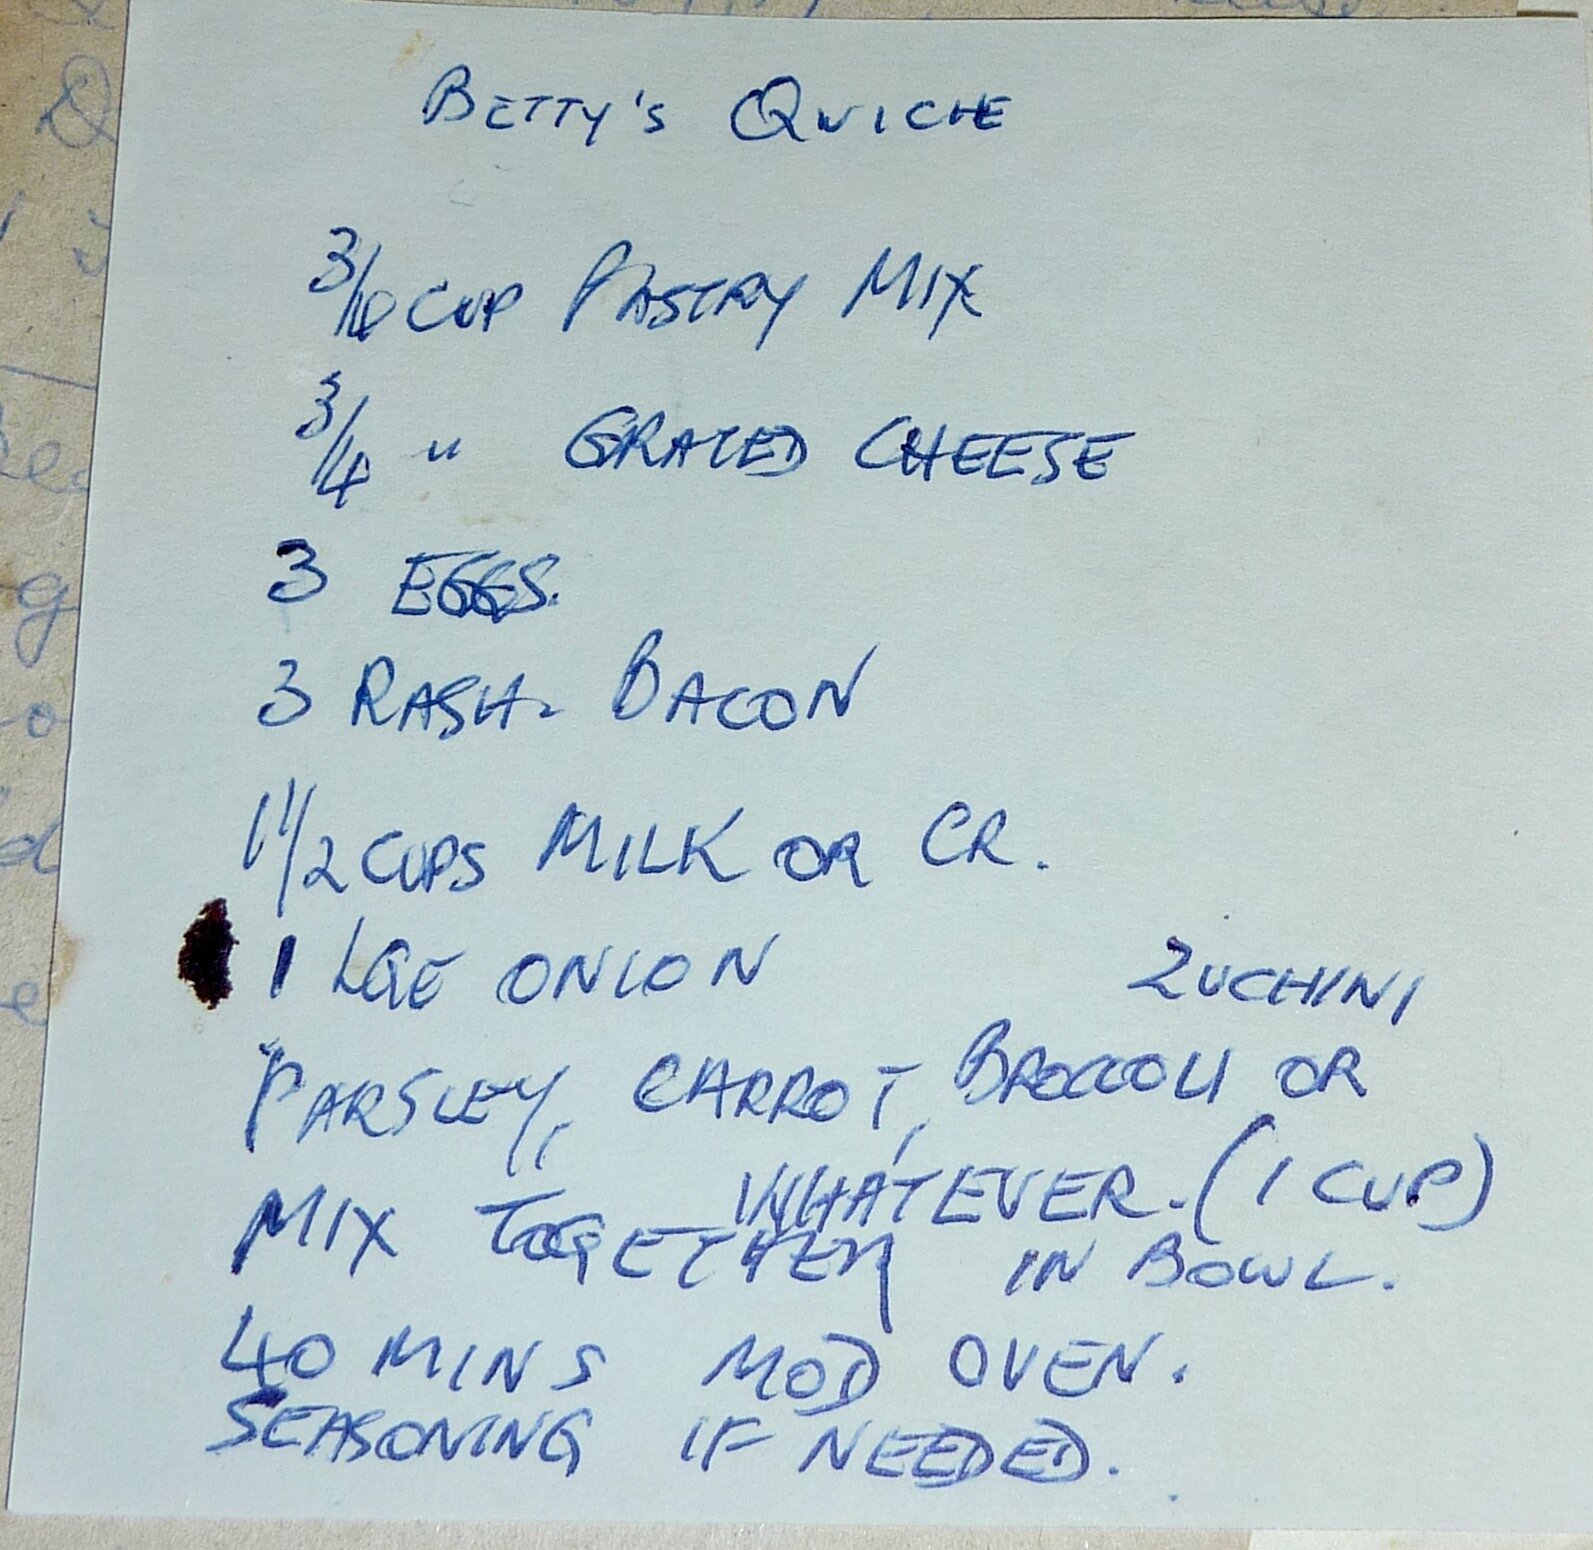 BETTY'S QUICHE
3/4 CUP PASTRY MIX
3/4 " GRATED CHEESE
3 EGGS.
3 RASH. BACON
1 1/2 CUPS MILK OR CR.
1 LGE ONION
ZUCHINI
PARSLEY, CARROT, BROCCOLI OR
WHATEVER. (1 CUP)
MIX TOGETHER IN BOWL.
40 MINS MOD OVEN.
SEASONING IF NEEDED.